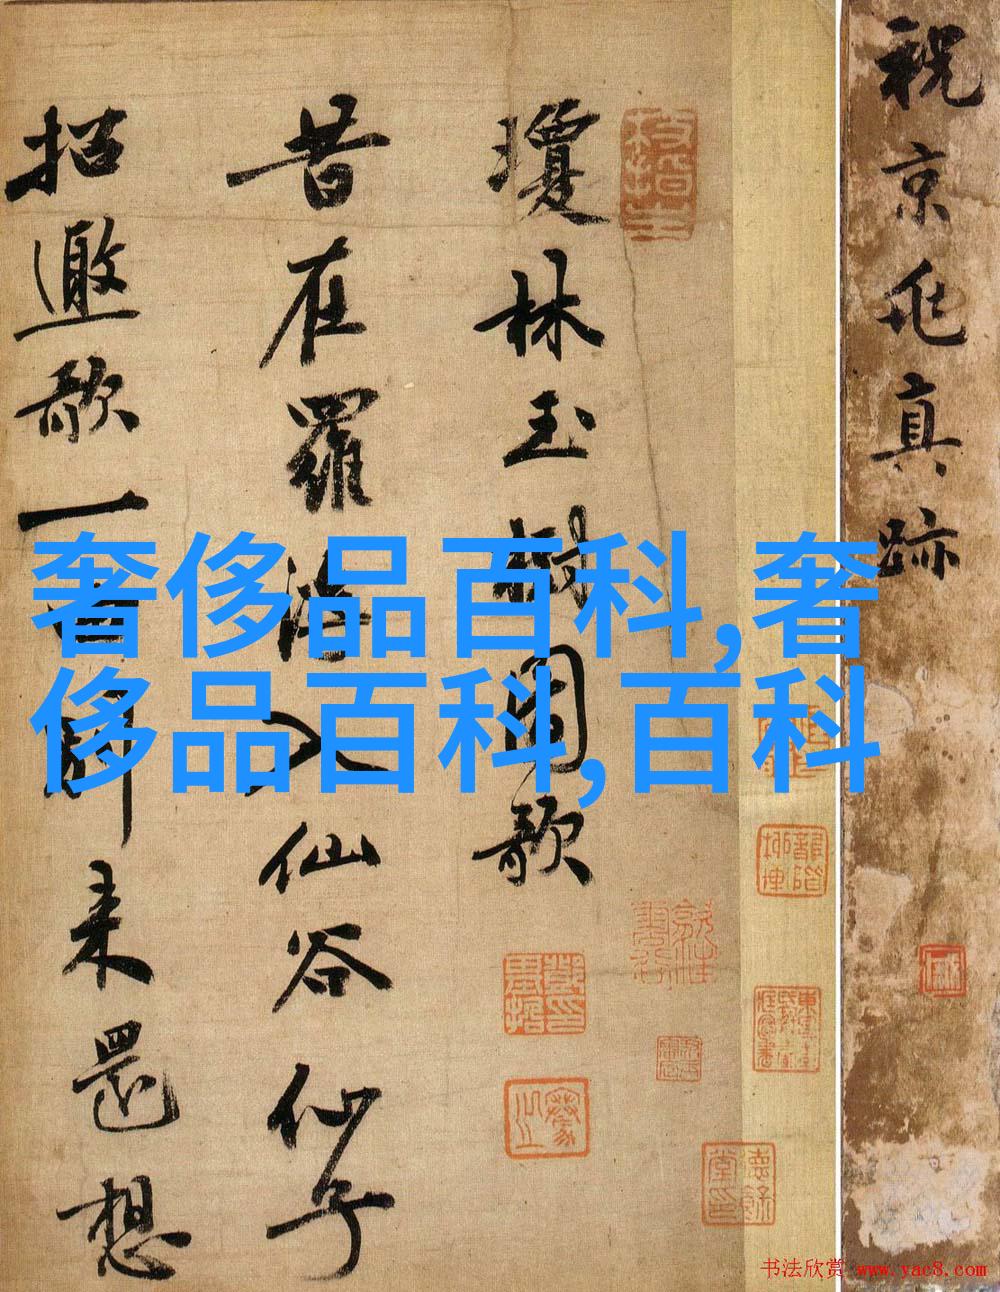 祝京兆真跡
枝指生
瓊林玉樹圖歌
昔在羅浮入仙谷仙子
招邀歌一曲歸来還想
奢侈品百科,奢
侈品百科,百科
书法欣赏 www.yac8.com